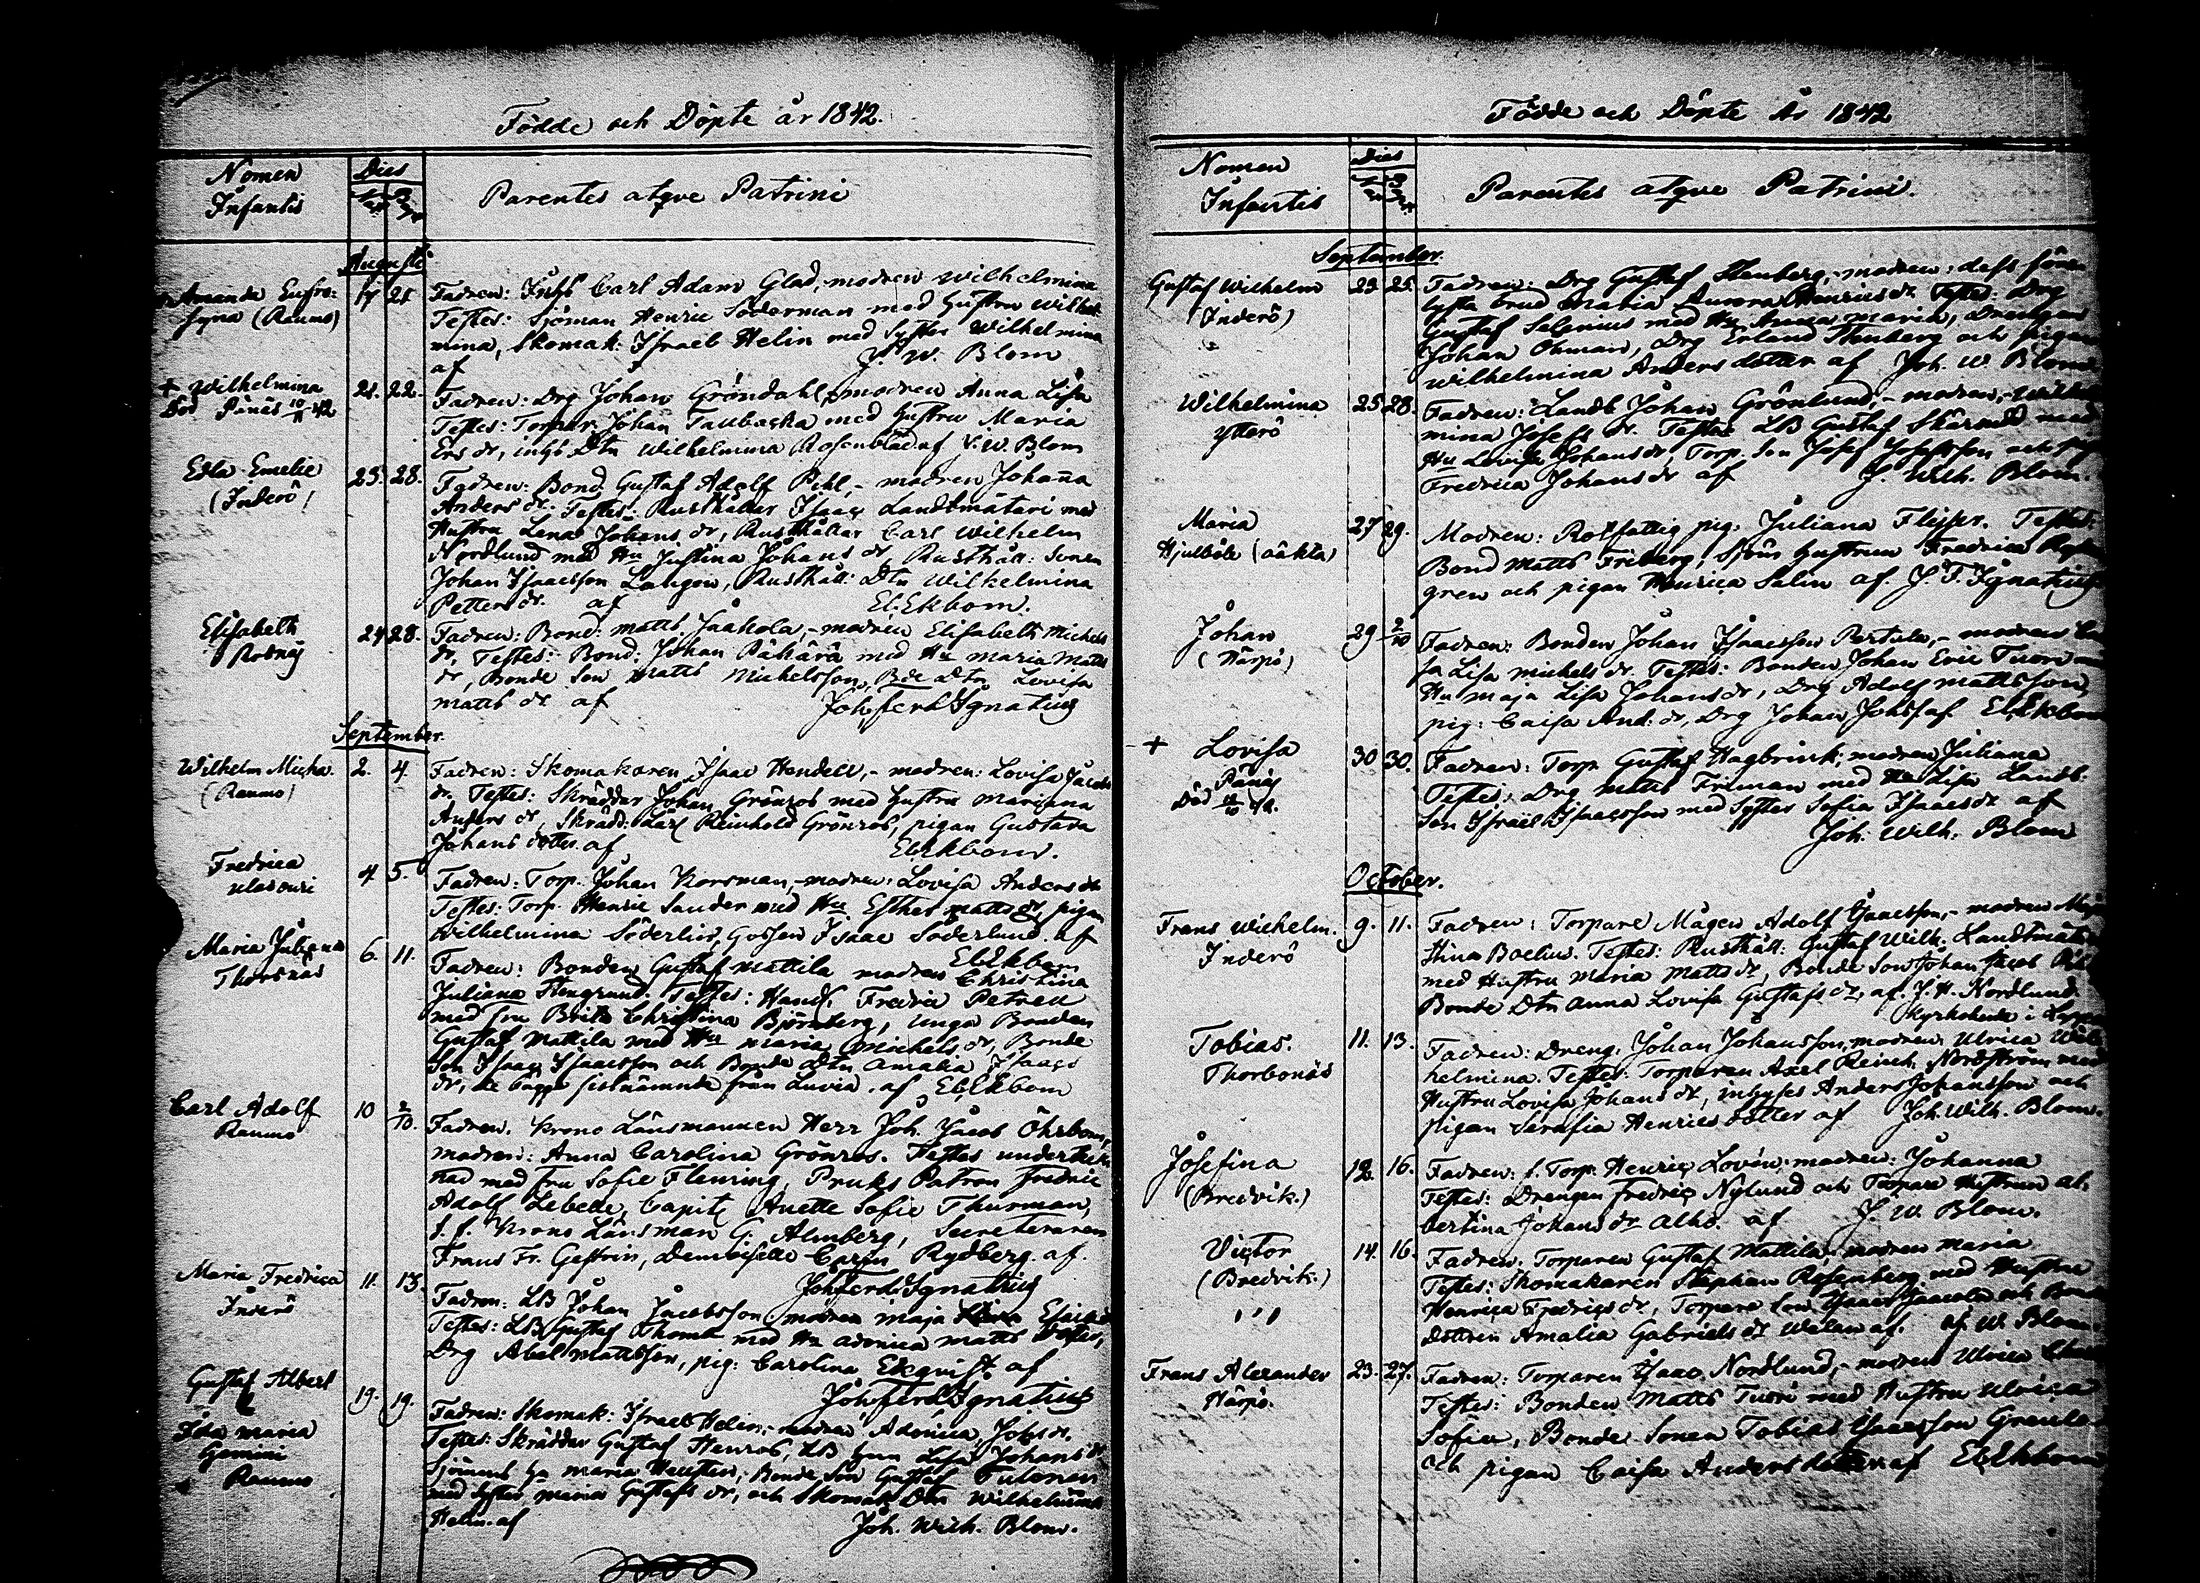 Födde och Döpte år 1842.
Nomen Infantis
Dies
Parentes atqve Patrini
Augusti
Amanda Eufro-
syna (Raumo)
17 21
Fadren: Inhs Carl Adam Glad, modren Wilhelmina
Testes: Sjöman Henric Söderman med Hustru Wilhel
mina, Skomak: Israel Helin med Syster Wilhelmina
af J. W. Blom
+ Wilhelmina
Död Pänäs 10/11 42
21. 22.
Fadren: Drg Johan Gröndahl, modren Anna Lisa
Testes: Torpar Johan Taubacka med Hustru Maria
Ers dr, inhs Dtn Wilhelmina Rosenblad af J. W. Blom
Edla Emelie
(Inderö)
23. 28.
Fadren: Bond Gustaf Adolf Pihl, - modren Johanna
Anders dr. Testes: Rusthållar Isaac Landtmätari med
Hustru Lena Johans dr, Rusthållar Carl Wilhelm
Nordlund med Hu Justina Johans dr, Rusthåll: Sonen
Johan Isaacsson Langen, Rusthåll: Dtn Wilhelmina
Petters dr. af El. Ekbom.
Elisabeth
24 28.
Fadren: Bond: Matts Jaakola, - modren Elisabeth Michels
dr, Testes: Bond: Johan Päkärä med Hu Maria Matts
dr, Bonde Son Matts Michelsson, Bde Dtn Lovisa
Matts dr af Joh ferd Ignatius
September.
Wilhelm Micha.
(Raumo)
2. 4.
Fadren: Skomakaren Isaac Hendell, - modren: Lovisa Jacobs
dr. Testes: Skräddar Johan Grönros med Hustru Mariana
Anders dr, Skrädd: Carl Reinhold Grönros, pigan Gustava
Johans dotter af El. Ekbom.
Fredrica
4 5.
Fadren: Torp. Johan Korsman, - modren: Lovisa Anders dr
Testes: Torp Henric Sander med Hu Esther Matts dr, pigan
Wilhelmina Söderlin, Gossen Isaac Söderlund af
El. Ekbom
Maria Juliana
Thorsnäs
6. 11.
Fadren: Bonden Gustaf Mattila modren Christina
Juliana Stengrund. Testes: Handl. Fredric Petrell
med fru Brita Christina Björnberg, unga Bonden
Gustaf Mattila med Hu Maria Michels dr, Bonde
Son Isaac Isaacsson och Bonde Dtn Amalia Isaacs
dr, de bägge sistnämnde från Luvia. af El. Ekbom
Carl Adolf
Raumo
10 2/10.
Fadren. Krono Länsmannen Herr Joh. Jacob Öhrbom,
modren: Anna Carolina Grönros. Testes underteck
nad med fru Sofie Fleming, Bruks Patron Fredric
Adolf Lebell, Capit: Anette Sofie Thurman,
t. f. Krono Länsman G. Almberg, Secreteraren
Frans Fr. Gestrin, Demoiselle Carin Rydberg af.
Joh ferd Ignatius
Maria Fredrica
Inderö
11. 13.
Fadren: LB Johan Jacobsson, modren Maja
Testes: LB Gustaf Thomb med Hu Adonica Matts dotter,
Drg Abel Mattsson, pig: Carolina Ekqvist af
Joh ferd Ignatius
Gustaf Albert
Ida Maria
Gemini
Raumo
19. 19.
Fadren: Skomak: Israel Helin, modren Adonica Johs dr.
Testes: Skräddar Gustaf Henros, LB Lisa Johans dr
Sjömans Maria Hellsten, Bonde Son Gustaf Tulonen
med Syster Maria Gustafs dr, och Skomak Dtn Wilhelmina
Helin. af Joh. Wilh. Blom.
Födde och Döpte År 1842
Nomen Infantis
Dies
Parentes atqve Patrini.
September.
Gustaf Wilhelm
(Inderö)
23 25.
Fadren: Drg Gustaf Stenberg, - modren: dess fören
lysta brud Maria Aurora Henrics dr. Testes: Drg
Gustaf Selenius med Hu Anna Maria, Drängen
Johan Öhman, Drg Erland Stenberg och pigan
Wilhelmina Anders dotter af Joh. W. Blom
Wilhelmina
Ytterö
25 28.
Fadren: Landb Johan Grönlund, - modren, - Wilhel
mina Josefs dr. Testes LB Gustaf Skärmed med
Hu Lovisa Johans dr Torp. Son Josef Josefsson och pig
Fredrica Johans dr af J. Wilh. Blom.
Maria
Hjulböle (oäkta)
27 29.
Modren: Rotfattig pig: Juliana Flijser. Testes:
Bond Matts Friberg, Sjöns Hustrun Fredrica
gren och pigan Henrica Salin af. J. F. Ignatius
Johan
(Härpö)
29 2/10
Fadren: Bonden Johan Isaacsson Pertula, - modren Cai
sa Lisa Michels dr. Testes: Bonden Johan Eric Tuori med
Hu Maja Lisa Johans dr, Drg Adolf Mattsson,
pig: Caisa And: dr, Drg Johan Johss af El. Ekbom
+ Lovisa
Pänäs
Död
30 30.
Fadren: Torp Gustaf Hagbrink, modren Juliana
Testes: Drg Matts Friman med Hu Lisa Landb.
Son Israel Isaacsson med Syster Sofia Isaacs dr af
Joh. Wilh. Blom
October.
Frans Wilhelm.
Inderö
9. 11.
Fadren: Torpare Mågen Adolf Isaacsson, - modren Maja
Stina Boelius. Testes: Rusthåll: Gustaf Wilh. Landtmätari
med Hustru Maria Matts dr, Bonde Son Johan Jacob
Bonde Dtn Anna Lovisa Gustafs dr, af. J. H. Nordlund.
Kyrkoherde i
Tobias.
Thorbonäs
11. 13.
Fadren: Dreng. Johan Johansson, modren Ulrica Wil
helmina. Testes: Torparen Axel Reinh. Nordström med
Hustru Lovisa Johans dr, inhyses Anders Johansson och
pigan Serafia Henrics dotter af Joh. Wilh. Blom.
Josefina
(Bredvik.)
12. 16.
Fadren: f. Torp: Henric Lovén, modren: Johanna
Testes: Drängen Fredric Nylund och Torpare Hustrun Al
bertina Johans dr Alho. af J. W. Blom.
Victor
(Bredvik.)
14. 16.
Fadren: Torparen Gustaf Mattila, modren Maria
Testes: Skomakaren Stephan Rosenberg med Hustru
Henrica Fredrics dr, Torpare Son Isaac Jacobss och Bonde
Dottren Amalia Gabriels dr Welan af. J. W. Blom
Frans Alexander
Härpö.
23. 27.
Fadren: Torparen Isaac Nordlund, - modren Ulrica
Testes: Bonden Matts Tuori med Hustru Ulrica
Sofia, Bonde Sonen Tobias Isaacsson Grenlo
och pigan Caisa Anders dotter af El. Ekbom